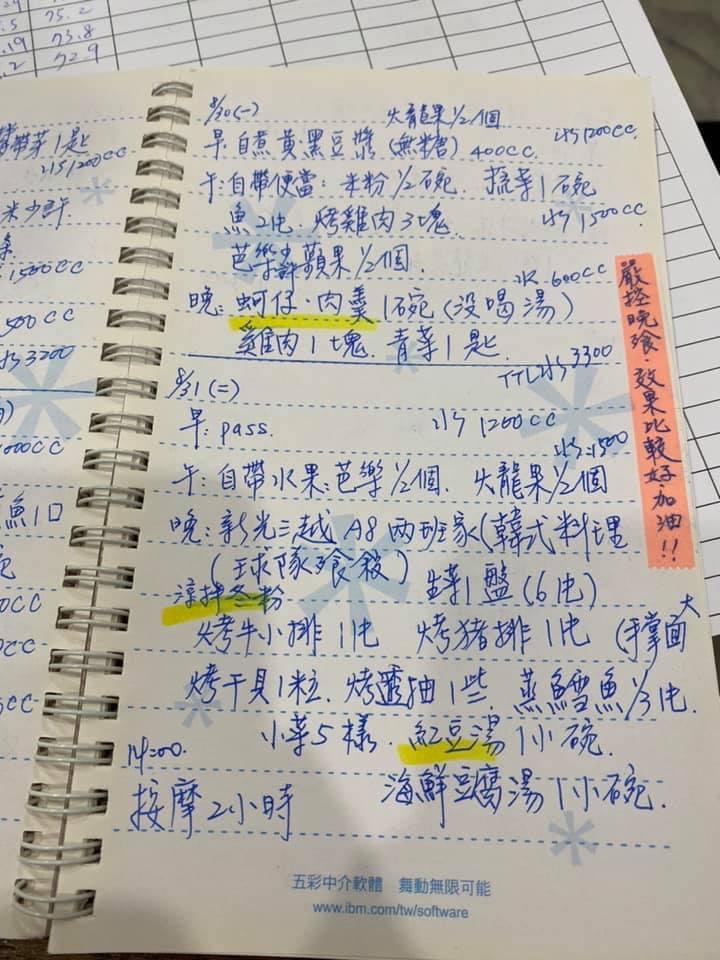 75.2
.19 75.8
.2 72.9
帶菜1匙
水1200cc
米少許
1500cc
500cc
水3200
000cc
魚1口
8/30(一) 火龍果1/2個
早:自煮黃.黑豆漿(無糖)400cc. 水1200cc
午:自帶便當:米粉1/2碗. 蔬菜1碗
魚2片 烤雞肉3塊. 水1500cc
芭樂 蘋果1/2個.
水600cc
晚:蚵仔.肉羹1碗(沒喝湯)
雞肉1塊. 青菜1匙.
TTL水3300
8/31(二)
早:pass. 水1200cc
水1500
午:自帶水果:芭樂1/2個. 火龍果1/2個
晚:新光三越A8兩班家(韓式料理
(球隊餐敘) 生菜1盤(6片)
涼拌冬粉
烤牛小排1片 烤豬排1片 (手掌面大
烤干貝1粒. 烤透抽1些. 蒸鱈魚1/3片.
小菜5樣. 紅豆湯1小碗.
14:00.
按摩2小時 海鮮豆腐湯1小碗.
嚴控晚餐.效果比較好.加油!!
五彩中介軟體 舞動無限可能
www.ibm.com/tw/software